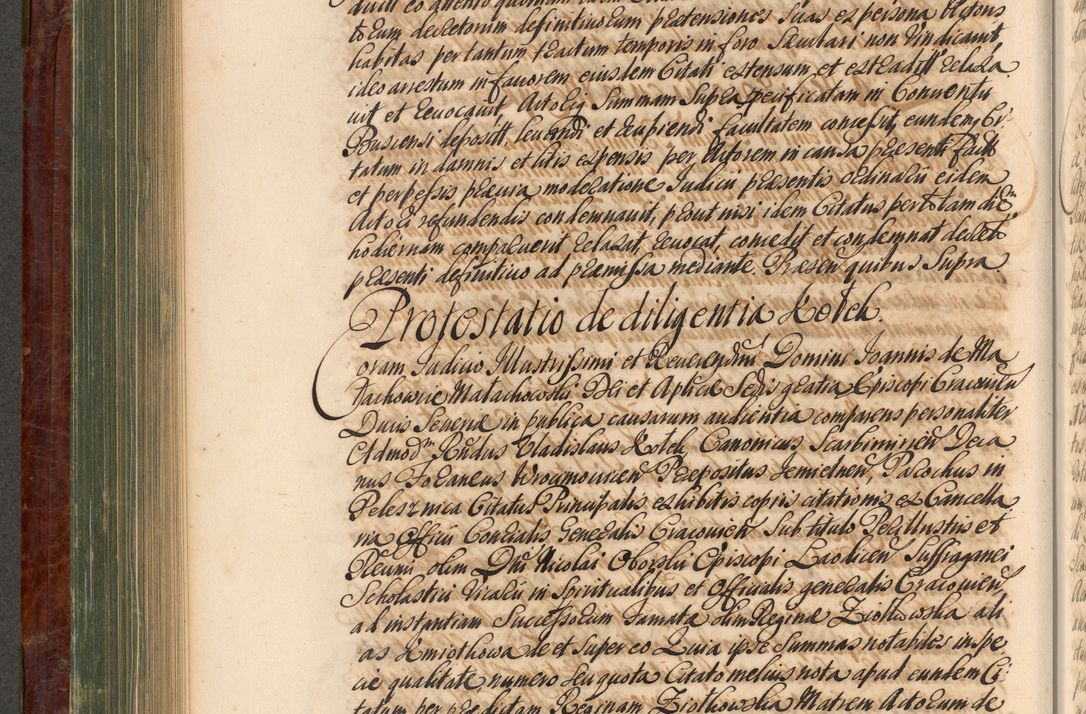 torum decretorum definitivorum prætensiones suas ex persona Actoris
habitas per tantum tractum temporis in foro sæculari non vindicavit
ideo arrestum in favorem eiusdem Citati extensum, et extradiit relaxa
vit et revocavit, Actoriq summam supra specificatam in Conventu
Buscensi deposit, levandi et recipiendi facultatem concessit, eundem Ci
tatum in damnis et litis expensis per Actorem in causa præsenti factis
et perpessis præuia moderatione Iudicii præsentis ordinarii eidem
Actori refundendis condemnavit, prout nisi idem Citatus per totam diem
hodiernam comparuerit relaxat, revocat, concedit et condemnat decreto
præsenti definitivo ad præmissa mediante. Præsen quibus supra
Protestatio de diligentia Rotch.
Coram Iudicio Illustrissimi et Reverendissimi Domini Ioannis de Ma
łachowice Małachowski Dei et Aplicæ Sedis gratia Episcopi Cracovien
Ducis Severiæ in publica causarum audientia comparens personaliter
Admodm Rndus Vladislaus Canonicus Scarbimirien Deca
nus Foraneus Wrocimovicen Præpositus Parochus in
Pelesznica Citatus Principalis exhibitis copiis citationis ex Cancella
ria Officii Consistorialis Generalis Cracovien sub titulo Perillustris et
Revmi olim Dni Nicolai Oborski Episcopi Laodicen Suffraganei
Scholastici Vicarii in Spiritualibus et Officialis generalis Cracovien
ad instantiam Successorum Famatæ olim Reginæ Ziołkowska ali
as Kmiotkowa de et super eo Quia ipse summas notabiles in spe
cie qualitate, numero seu quota Citato melius nota apud eundem Ci
tatum per prædictam Reginam Ziołkowska Matrem Actorum de